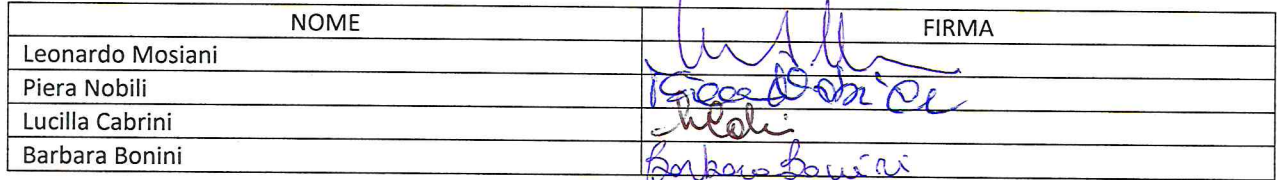 NOME FIRMA
Leonardo Mosiani
Piera Nobili Piera Nobili
Lucilla Cabrini
Barbara Bonini Barbara Bonini